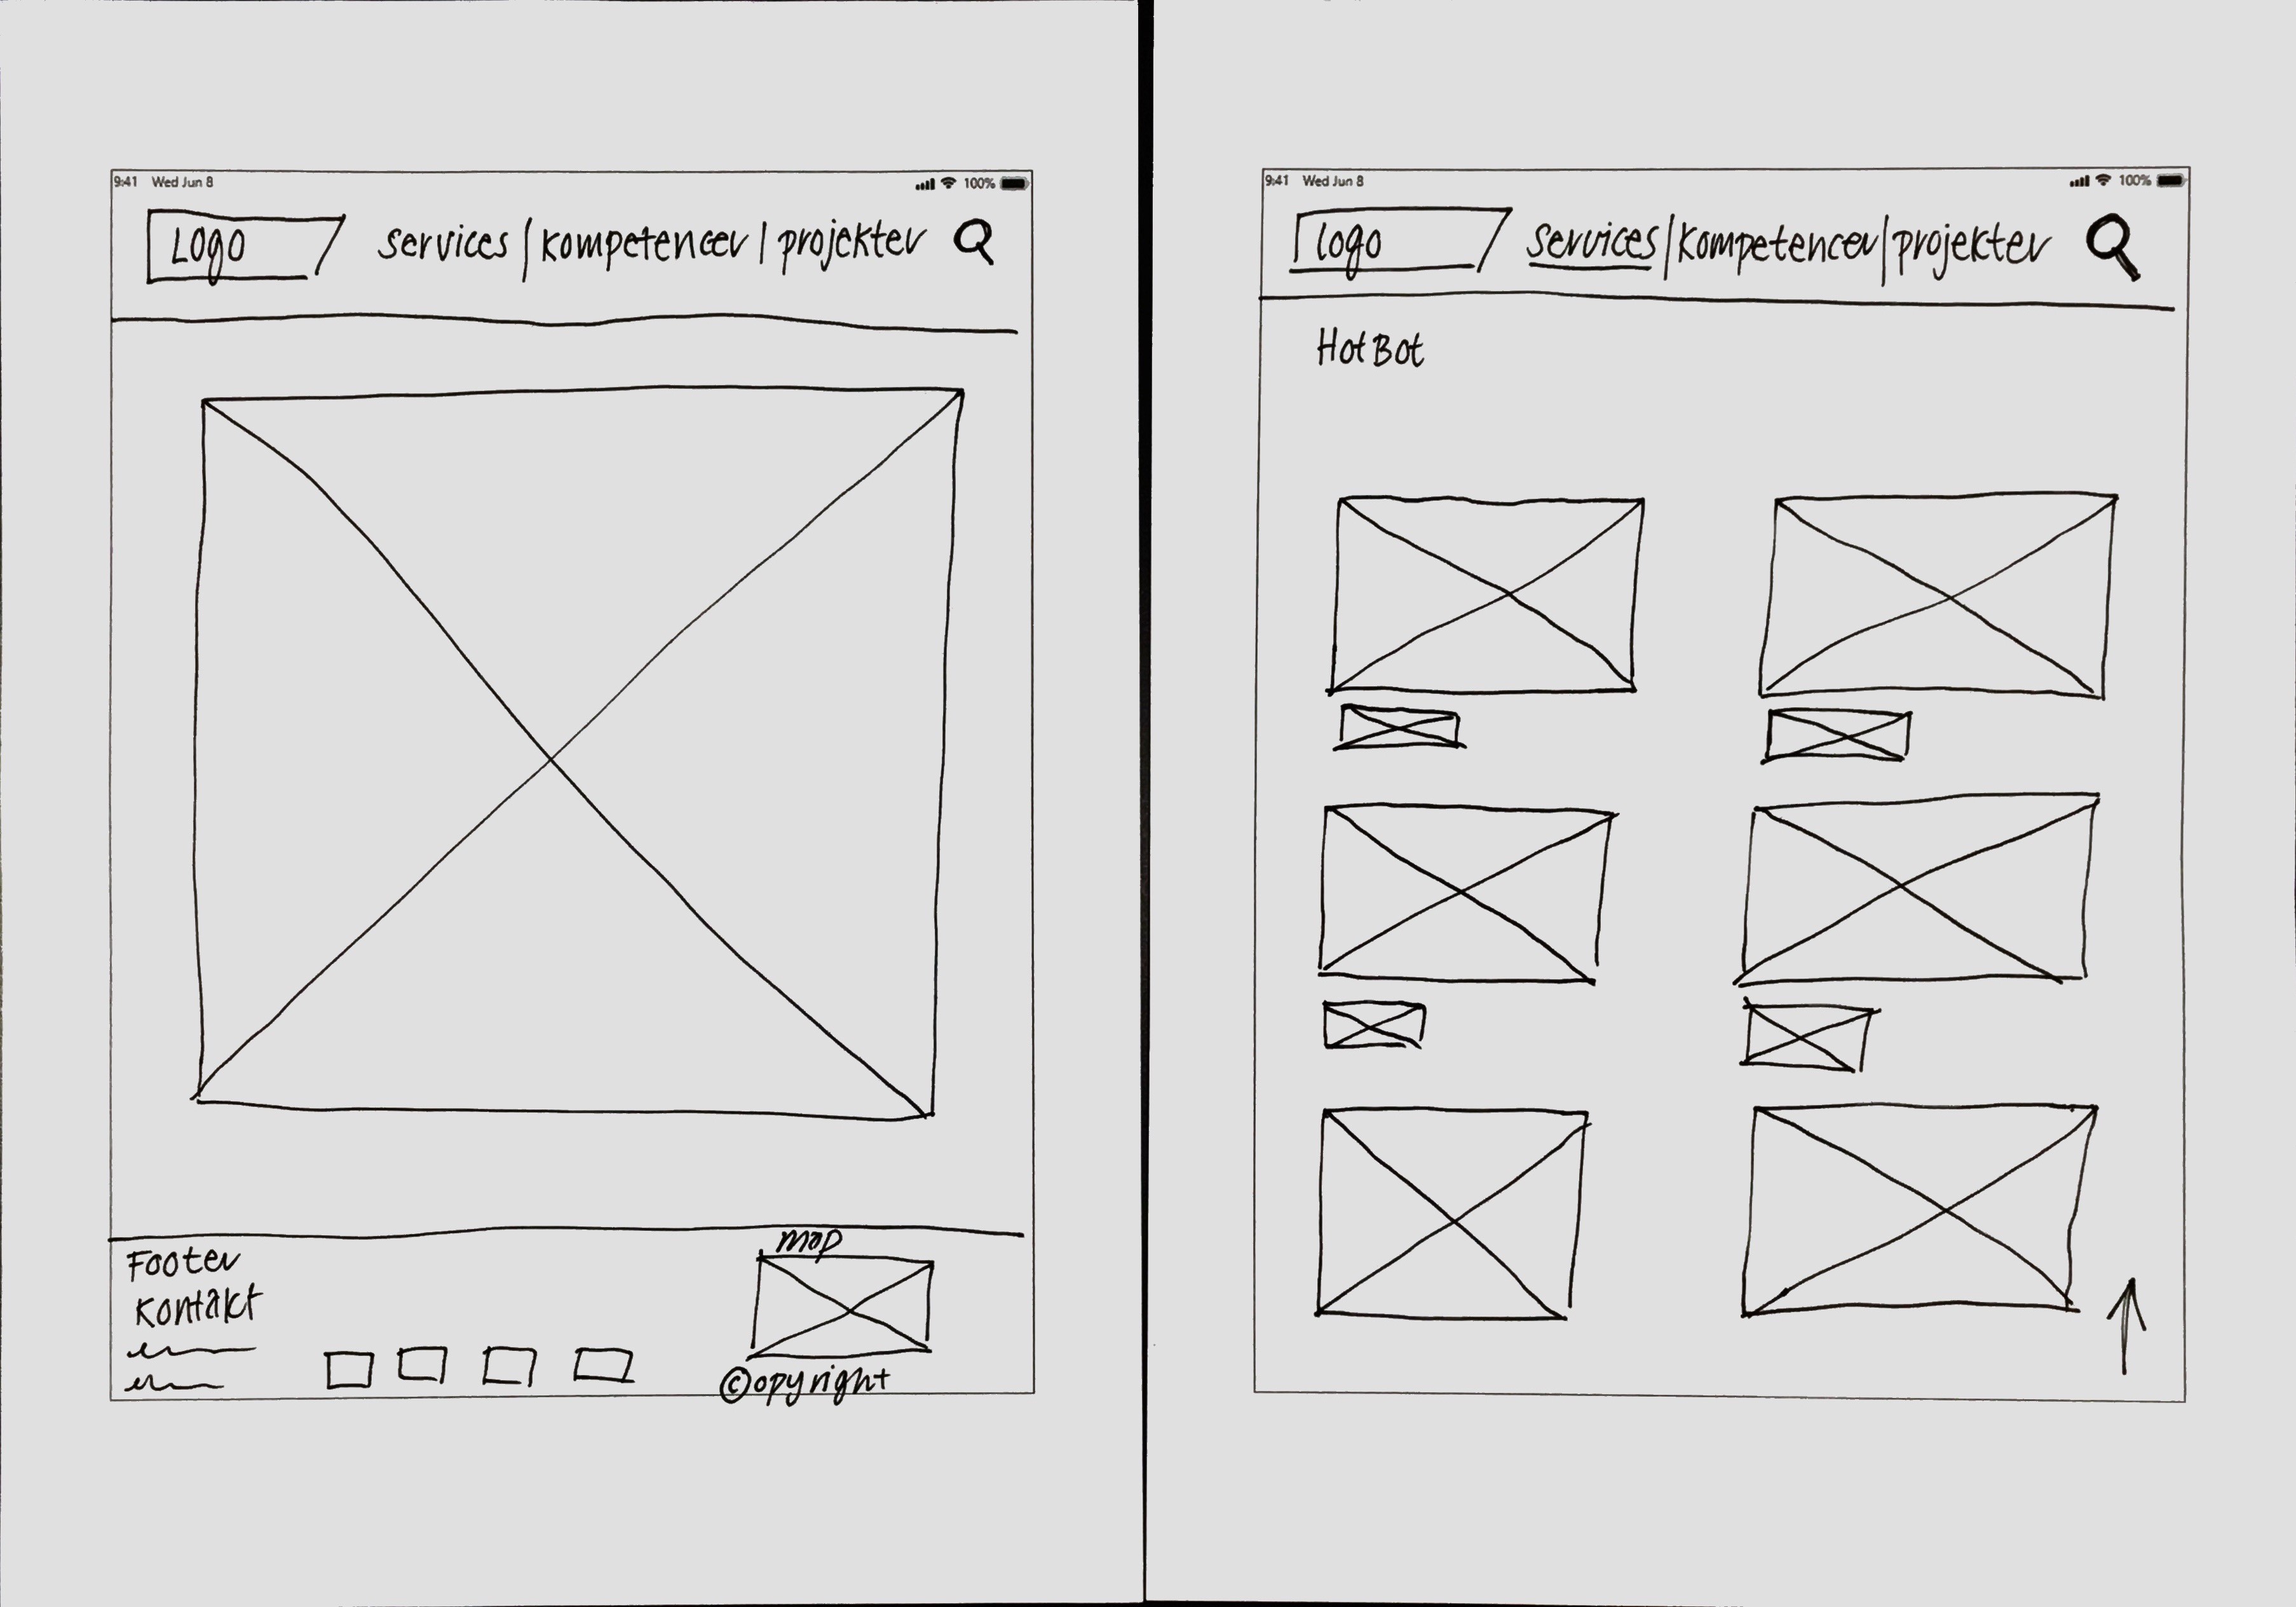 9:41 Wed Jun 8 100%
Logo services | kompetencer | projekter
Footer
Kontakt
map
©opyright
9:41 Wed Jun 8 100%
logo services | kompetencer | projekter
HotBot